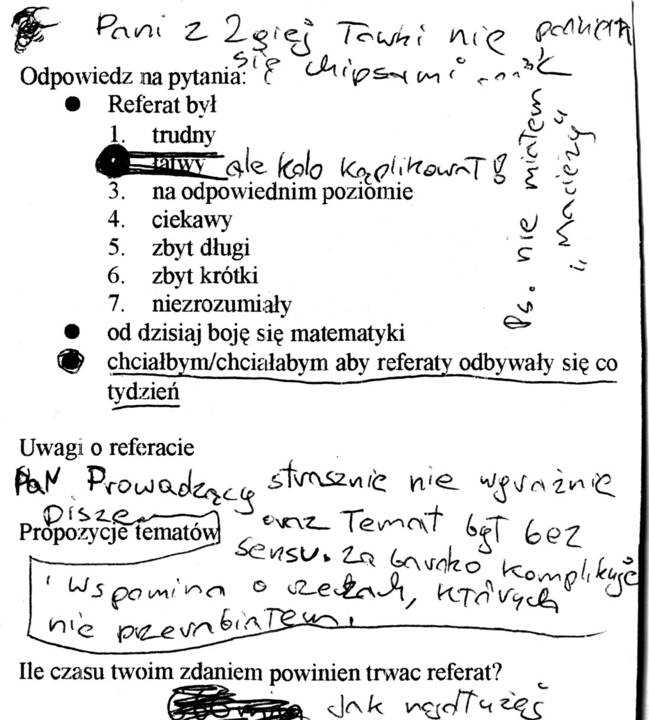 Pani z 2giej Ławki nie
się chipsami
Odpowiedz na pytania:
● Referat był
1. trudny
łatwy ale kolo kąplikował!
3. na odpowiednim poziomie
4. ciekawy
5. zbyt długi
6. zbyt krótki
7. niezrozumiały
● od dzisiaj boję się matematyki
● chciałbym/chciałabym aby referaty odbywały się co
tydzień
Ps. nie miałem
"Macieży"
Uwagi o referacie
Pan Prowadzący strasznie nie wyraźnie
Pisze oraz Temat był bez
sensu. za bardzo komplikuje
Propozycje tematów
Wspomina o rzeczach, których
nie przerabiałem.
Ile czasu twoim zdaniem powinien trwac referat?
Jak najdłużej